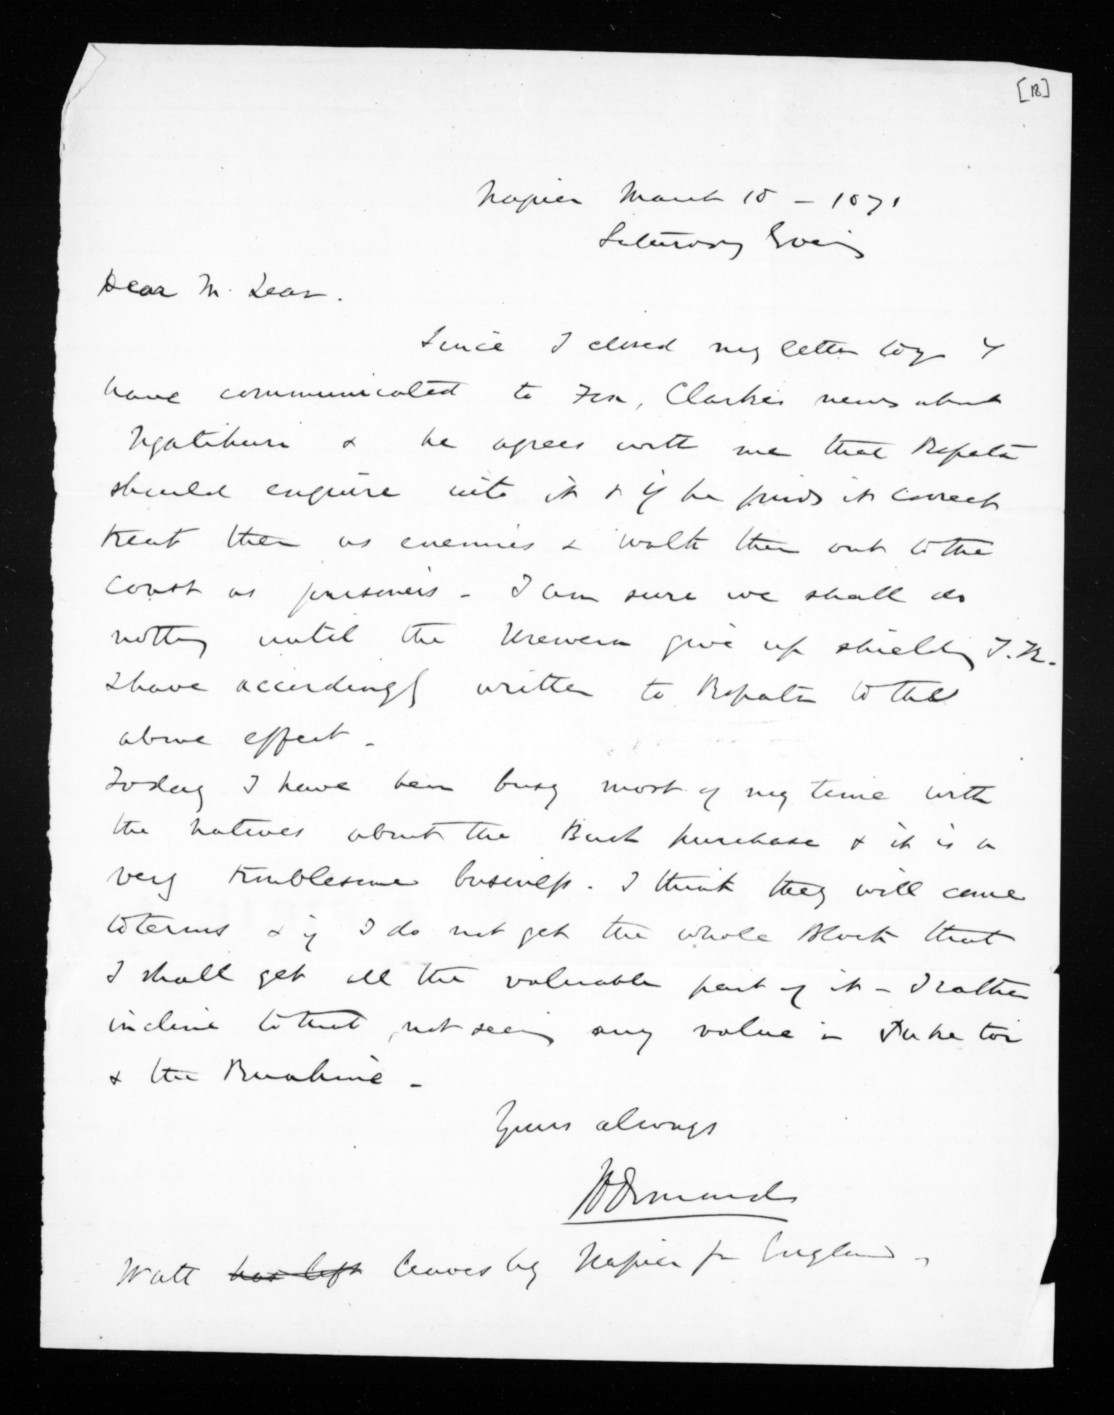 [18]
Napier March 18 - 1871
Saturday Evening
Dear McLean.
Since I closed my letter to you I
have communicated to Fox, Clarke's news about
Ngatihuri & he agrees with me that Ropata
should enquire into it & if he finds it correct
treat them as enemies & walk them out to the
Coast as prisoners - I am sure we shall do
nothing until the Urewera give up shielding T.K.
I have accordingly written to Ropata to the
above effect -
Today I have been busy most of my time with
the Natives about the Bush purchase & it is a
very troublesome business. I think they will come
to terms & if I do not get the whole Block that
I shall get all the valuable part of it - I rather
incline to that, not seeing any value in Puketoi
& the Ruahine -
Yours always
JD Ormond
Watt has left leaves by Napier for England -